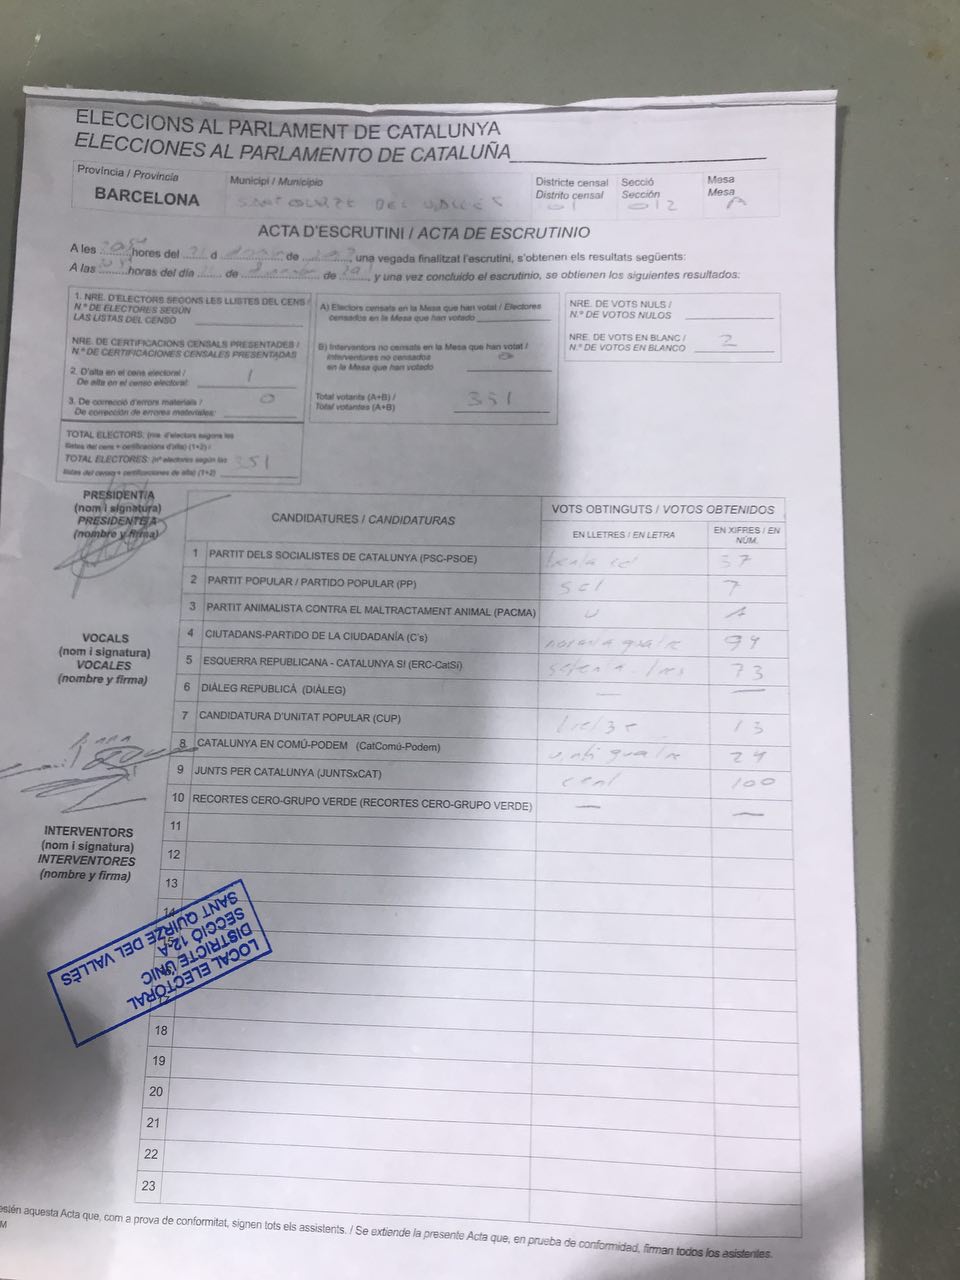 ELECCIONS AL PARLAMENT DE CATALUNYA
ELECCIONES AL PARLAMENTO DE CATALUÑA
Província / Provincia
BARCELONA
Municipi / Municipio
SANT QUIRZE DEL VALLÈS
Districte censal
Distrito censal
01
Secció
Sección
012
Mesa
Mesa
A
ACTA D'ESCRUTINI / ACTA DE ESCRUTINIO
A les hores del 21 d de , una vegada finalitzat l'escrutini, s'obtenen els resultats següents:
A las horas del día de de , y una vez concluido el escrutinio, se obtienen los siguientes resultados:
1. NRE. D'ELECTORS SEGONS LES LLISTES DEL CENS /
N.º DE ELECTORES SEGÚN
LAS LISTAS DEL CENSO
NRE. DE CERTIFICACIONS CENSALS PRESENTADES /
N.º DE CERTIFICACIONES CENSALES PRESENTADAS
2. D'alta en el cens electoral /
De alta en el censo electoral: 1
3. De correcció d'errors materials /
De corrección de errores materiales: 0
TOTAL ELECTORS: (nre. d'electors segons les
llistes del cens + certificacions d'alta) (1+2) /
TOTAL ELECTORES: (nº electores según las
listas del censo + certificaciones de alta) (1+2) 351
A) Electors censats en la Mesa que han votat / Electores
censados en la Mesa que han votado
B) Interventors no censats en la Mesa que han votat /
Interventores no censados
en la Mesa que han votado 0
Total votants (A+B) /
Total votantes (A+B) 351
NRE. DE VOTS NULS /
N.º DE VOTOS NULOS
NRE. DE VOTS EN BLANC /
N.º DE VOTOS EN BLANCO 2
PRESIDENT/A
(nom i signatura)
PRESIDENTE/A
(nombre y firma)
VOCALS
(nom i signatura)
VOCALES
(nombre y firma)
INTERVENTORS
(nom i signatura)
INTERVENTORES
(nombre y firma)
CANDIDATURES / CANDIDATURAS
VOTS OBTINGUTS / VOTOS OBTENIDOS
EN LLETRES / EN LETRA
EN XIFRES / EN
NÚM.
1 PARTIT DELS SOCIALISTES DE CATALUNYA (PSC-PSOE) 37
2 PARTIT POPULAR / PARTIDO POPULAR (PP) set 7
3 PARTIT ANIMALISTA CONTRA EL MALTRACTAMENT ANIMAL (PACMA) U 1
4 CIUTADANS-PARTIDO DE LA CIUDADANÍA (C's) noranta quatre 94
5 ESQUERRA REPUBLICANA - CATALUNYA SI (ERC-CatSí) setenta-tres 73
6 DIÀLEG REPUBLICÀ (DIÀLEG) — —
7 CANDIDATURA D'UNITAT POPULAR (CUP) tretze 13
8 CATALUNYA EN COMÚ-PODEM (CatComú-Podem) vinti quatre 24
9 JUNTS PER CATALUNYA (JUNTSxCAT) cent 100
10 RECORTES CERO-GRUPO VERDE (RECORTES CERO-GRUPO VERDE) — —
11
12
13
14
LOCAL ELECTORAL
DISTRICTE ÚNIC
SECCIÓ 12-A
SANT QUIRZE DEL VALLÈS
18
19
20
21
22
23
estén aquesta Acta que, com a prova de conformitat, signen tots els assistents. / Se extiende la presente Acta que, en prueba de conformidad, firman todos los asistentes.